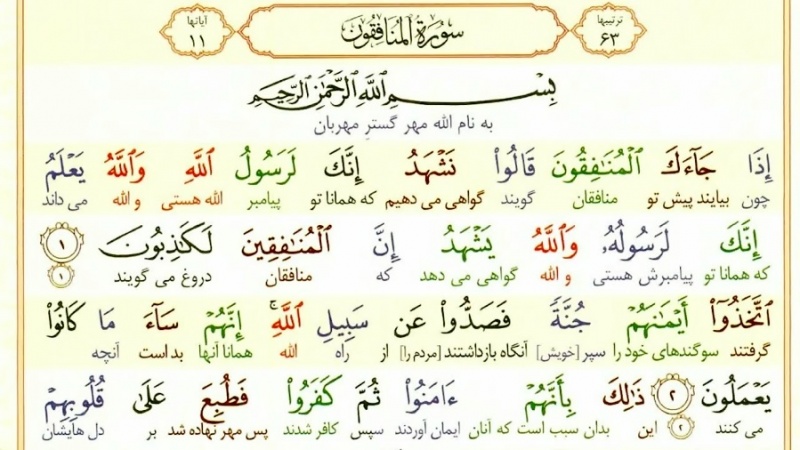 ترتیبها ۶۳ سُورَةُ المُنَافِقُونَ آیاتها ۱۱
بِسْمِ ٱللَّهِ ٱلرَّحْمَٰنِ ٱلرَّحِيمِ
به نام الله مهر گسترِ مهربان
إِذَا جَآءَكَ ٱلْمُنَٰفِقُونَ قَالُوا۟ نَشْهَدُ إِنَّكَ لَرَسُولُ ٱللَّهِ وَٱللَّهُ يَعْلَمُ
چون بیایند پیش تو منافقان گویند گواهی می دهیم که همانا تو پیامبر الله هستی و الله می داند
إِنَّكَ لَرَسُولُهُۥ وَٱللَّهُ يَشْهَدُ إِنَّ ٱلْمُنَٰفِقِينَ لَكَٰذِبُونَ ۱
که همانا تو پیامبرش هستی و الله گواهی می دهد که منافقان دروغ می گویند ۱
ٱتَّخَذُوٓا۟ أَيْمَٰنَهُمْ جُنَّةً فَصَدُّوا۟ عَن سَبِيلِ ٱللَّهِ ۚ إِنَّهُمْ سَآءَ مَا كَانُوا۟
گرفتند سوگندهای خود را سپر [خویش] آنگاه بازداشتند [مردم را] از راه الله همانا آنها بد است آنچه
يَعْمَلُونَ ۲ ذَٰلِكَ بِأَنَّهُمْ ءَامَنُوا۟ ثُمَّ كَفَرُوا۟ فَطُبِعَ عَلَىٰ قُلُوبِهِمْ
می کنند ۲ این بدان سبب است که آنان ایمان آوردند سپس کافر شدند پس مهر نهاده شد بر دل هایشان